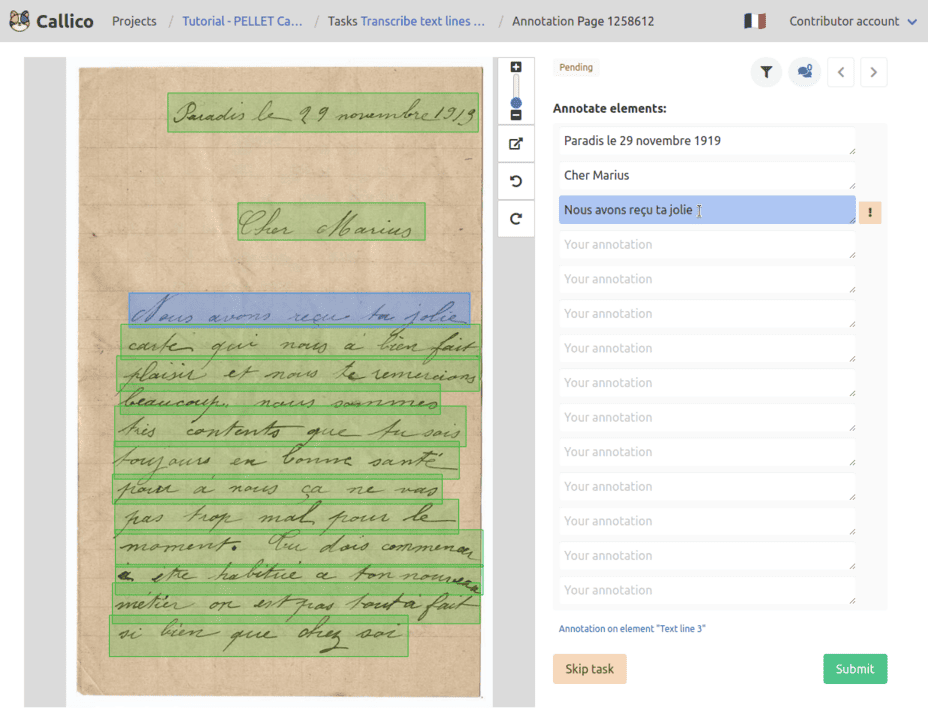 Callico
Projects / Tutorial - PELLET Ca... / Tasks Transcribe text lines ... / Annotation Page 1258612
Contributor account
Pending
Annotate elements:
Paradis le 29 novembre 1919
Cher Marius
Nous avons reçu ta jolie
!
Your annotation
Your annotation
Your annotation
Your annotation
Your annotation
Your annotation
Your annotation
Your annotation
Your annotation
Your annotation
Your annotation
Annotation on element "Text line 3"
Skip task
Submit
Paradis le 29 novembre 1919
Cher Marius
Nous avons reçu ta jolie
carte qui nous à bien fait
plaisir et nous te remercions
beaucoup, nous sommes
très contents que tu sois
toujours en bonne santé
pour à nous ça ne vas
pas trop mal pour le
moment. Tu dois commencer
a etre habitué a ton nouveau
métier on est pas tout à fait
si bien que chez soi